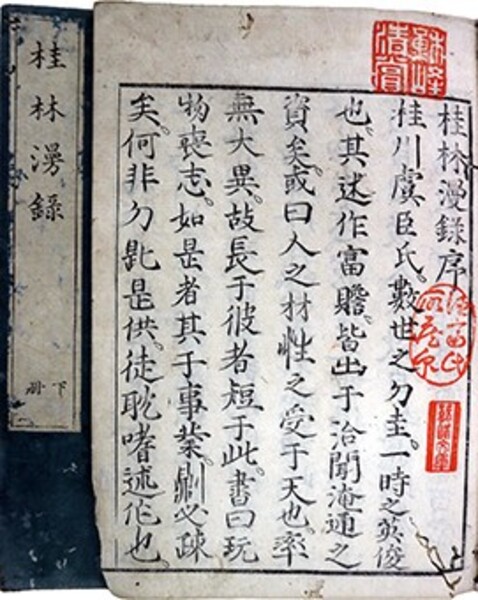 桂林漫錄序
桂川虞臣氏。數世之刀圭。一時之英俊
也。其述作富贍。皆出于洽聞淹通之
資矣。或曰人之材性之受于天也。率
無大異。故長于彼者短于此。書曰玩
物喪志。如是者其于事業。則必疎
矣。何非刀匙是供。徒耽嗜述作也。
蘇峰清賞
桂林漫錄
下冊